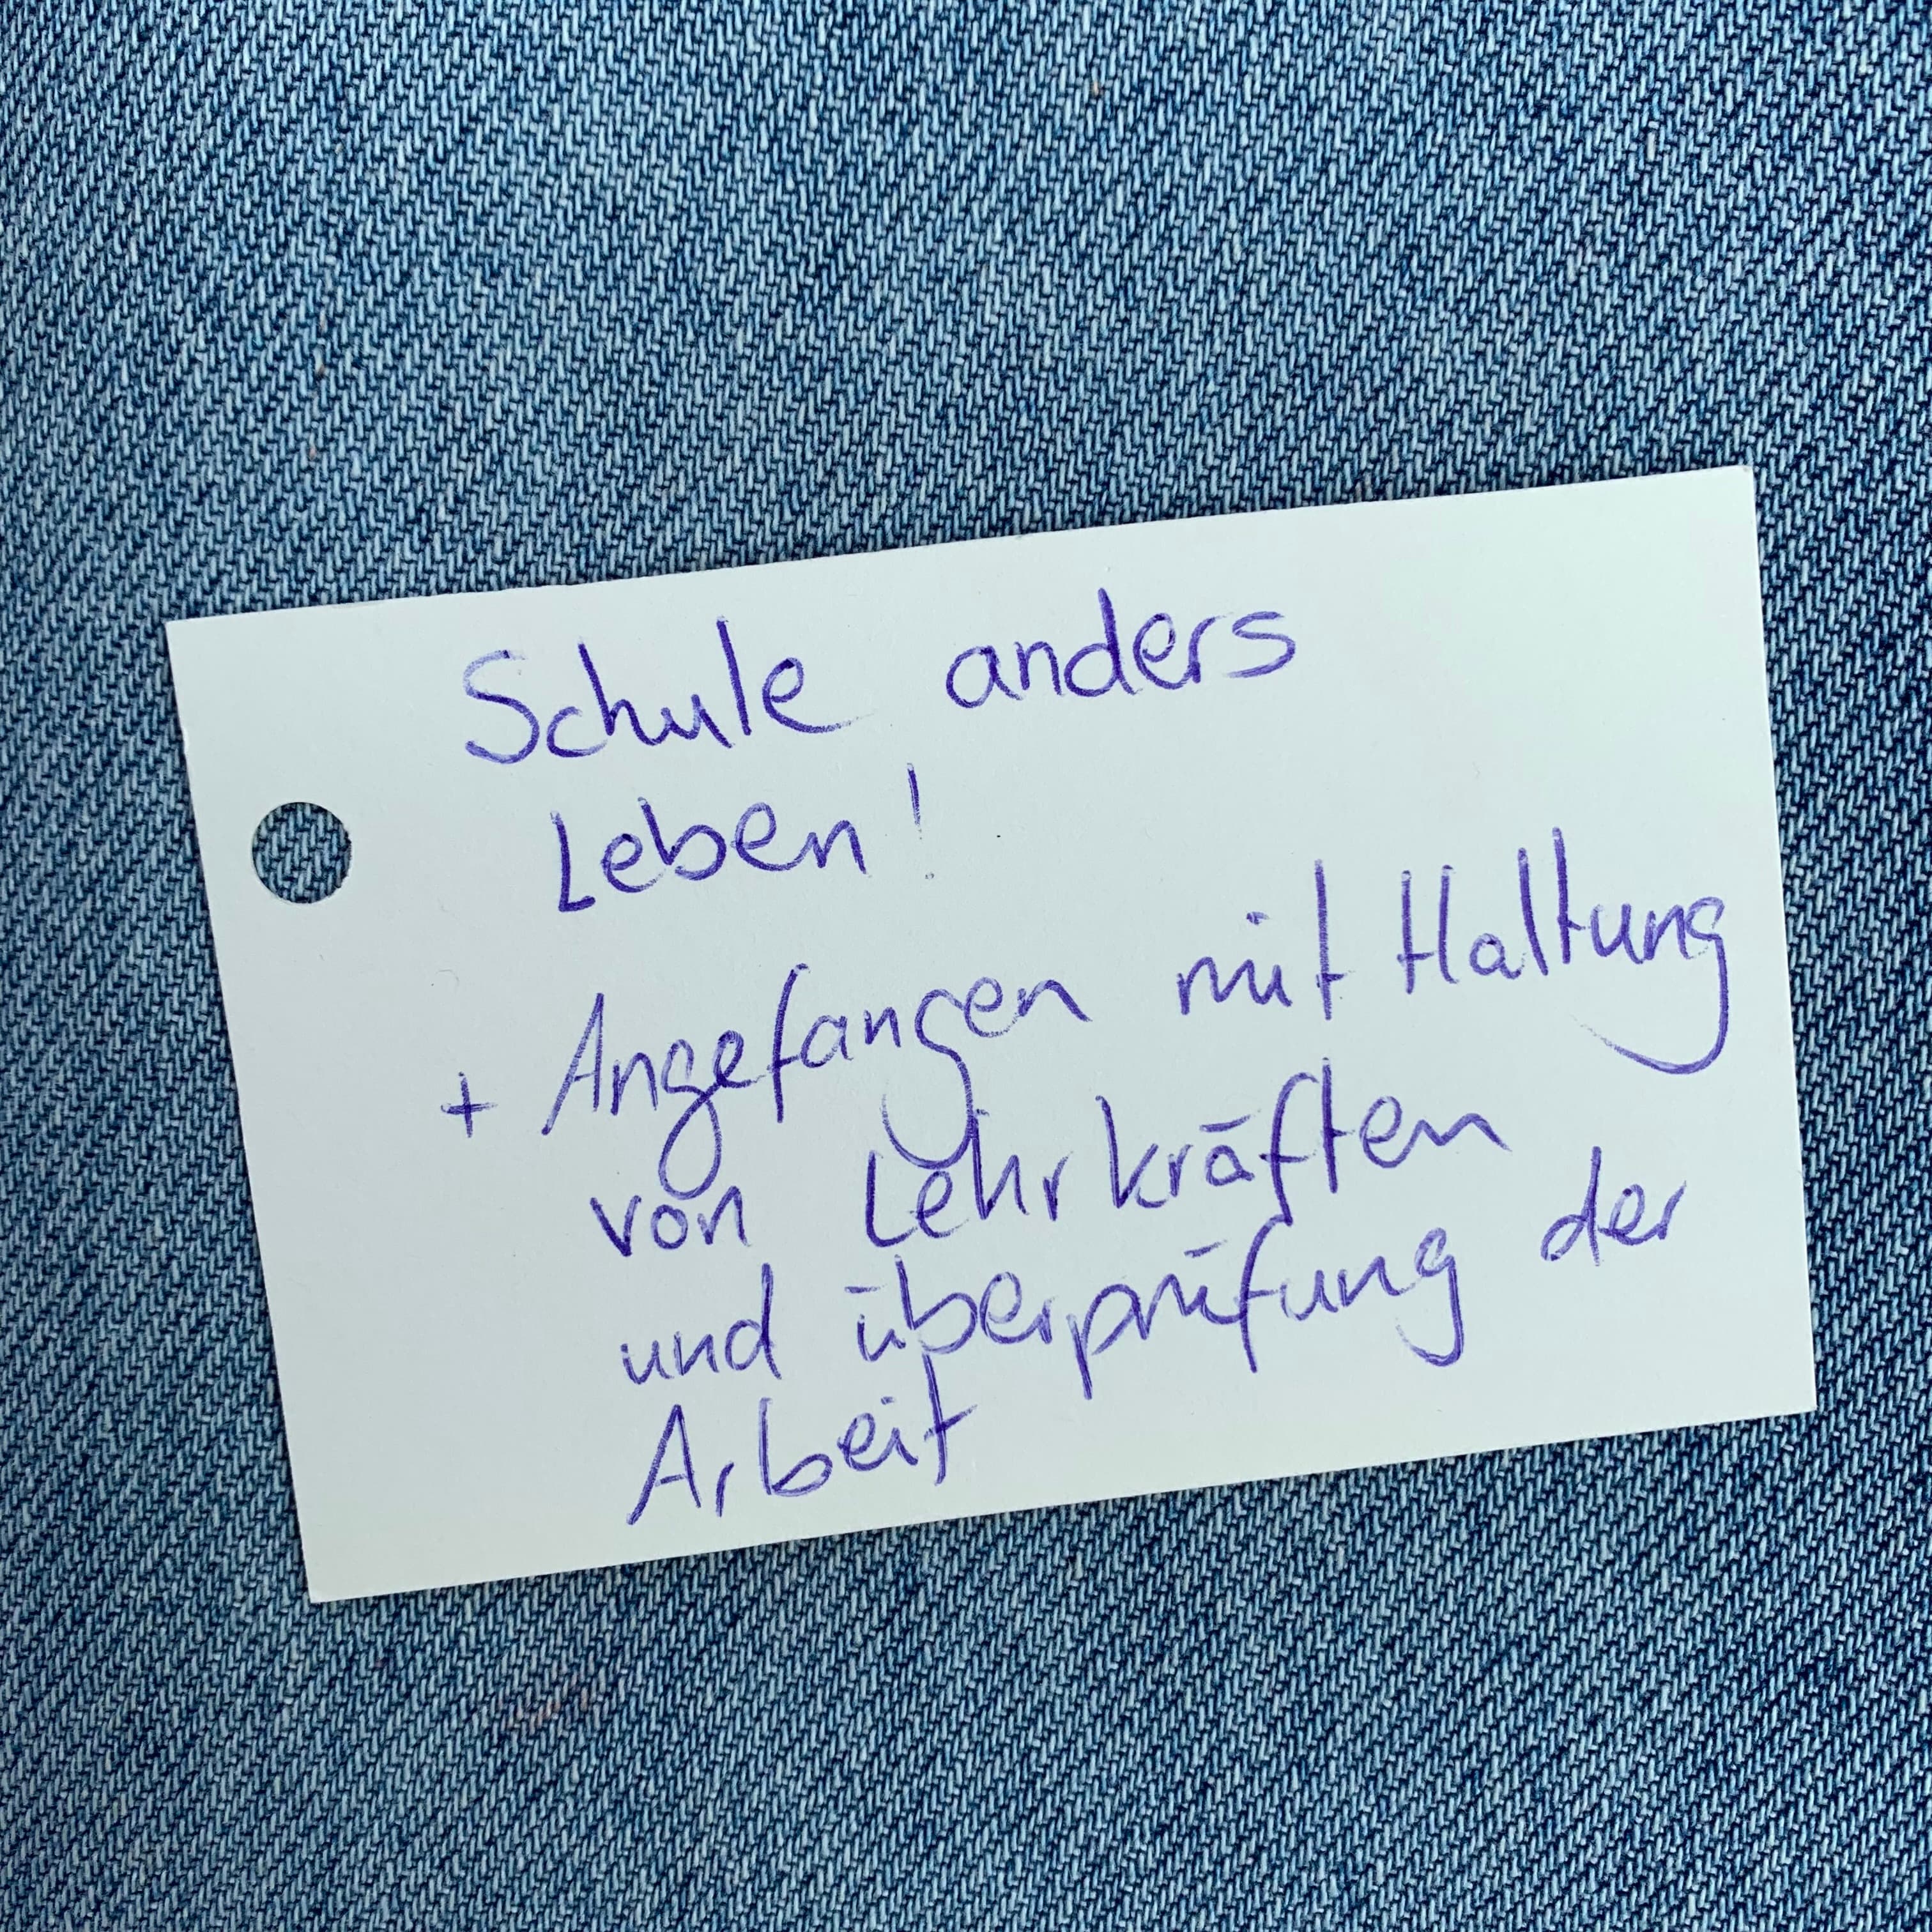 Schule anders
Leben!
+ Angefangen mit Haltung
von Lehrkräften
und überprüfung der
Arbeit